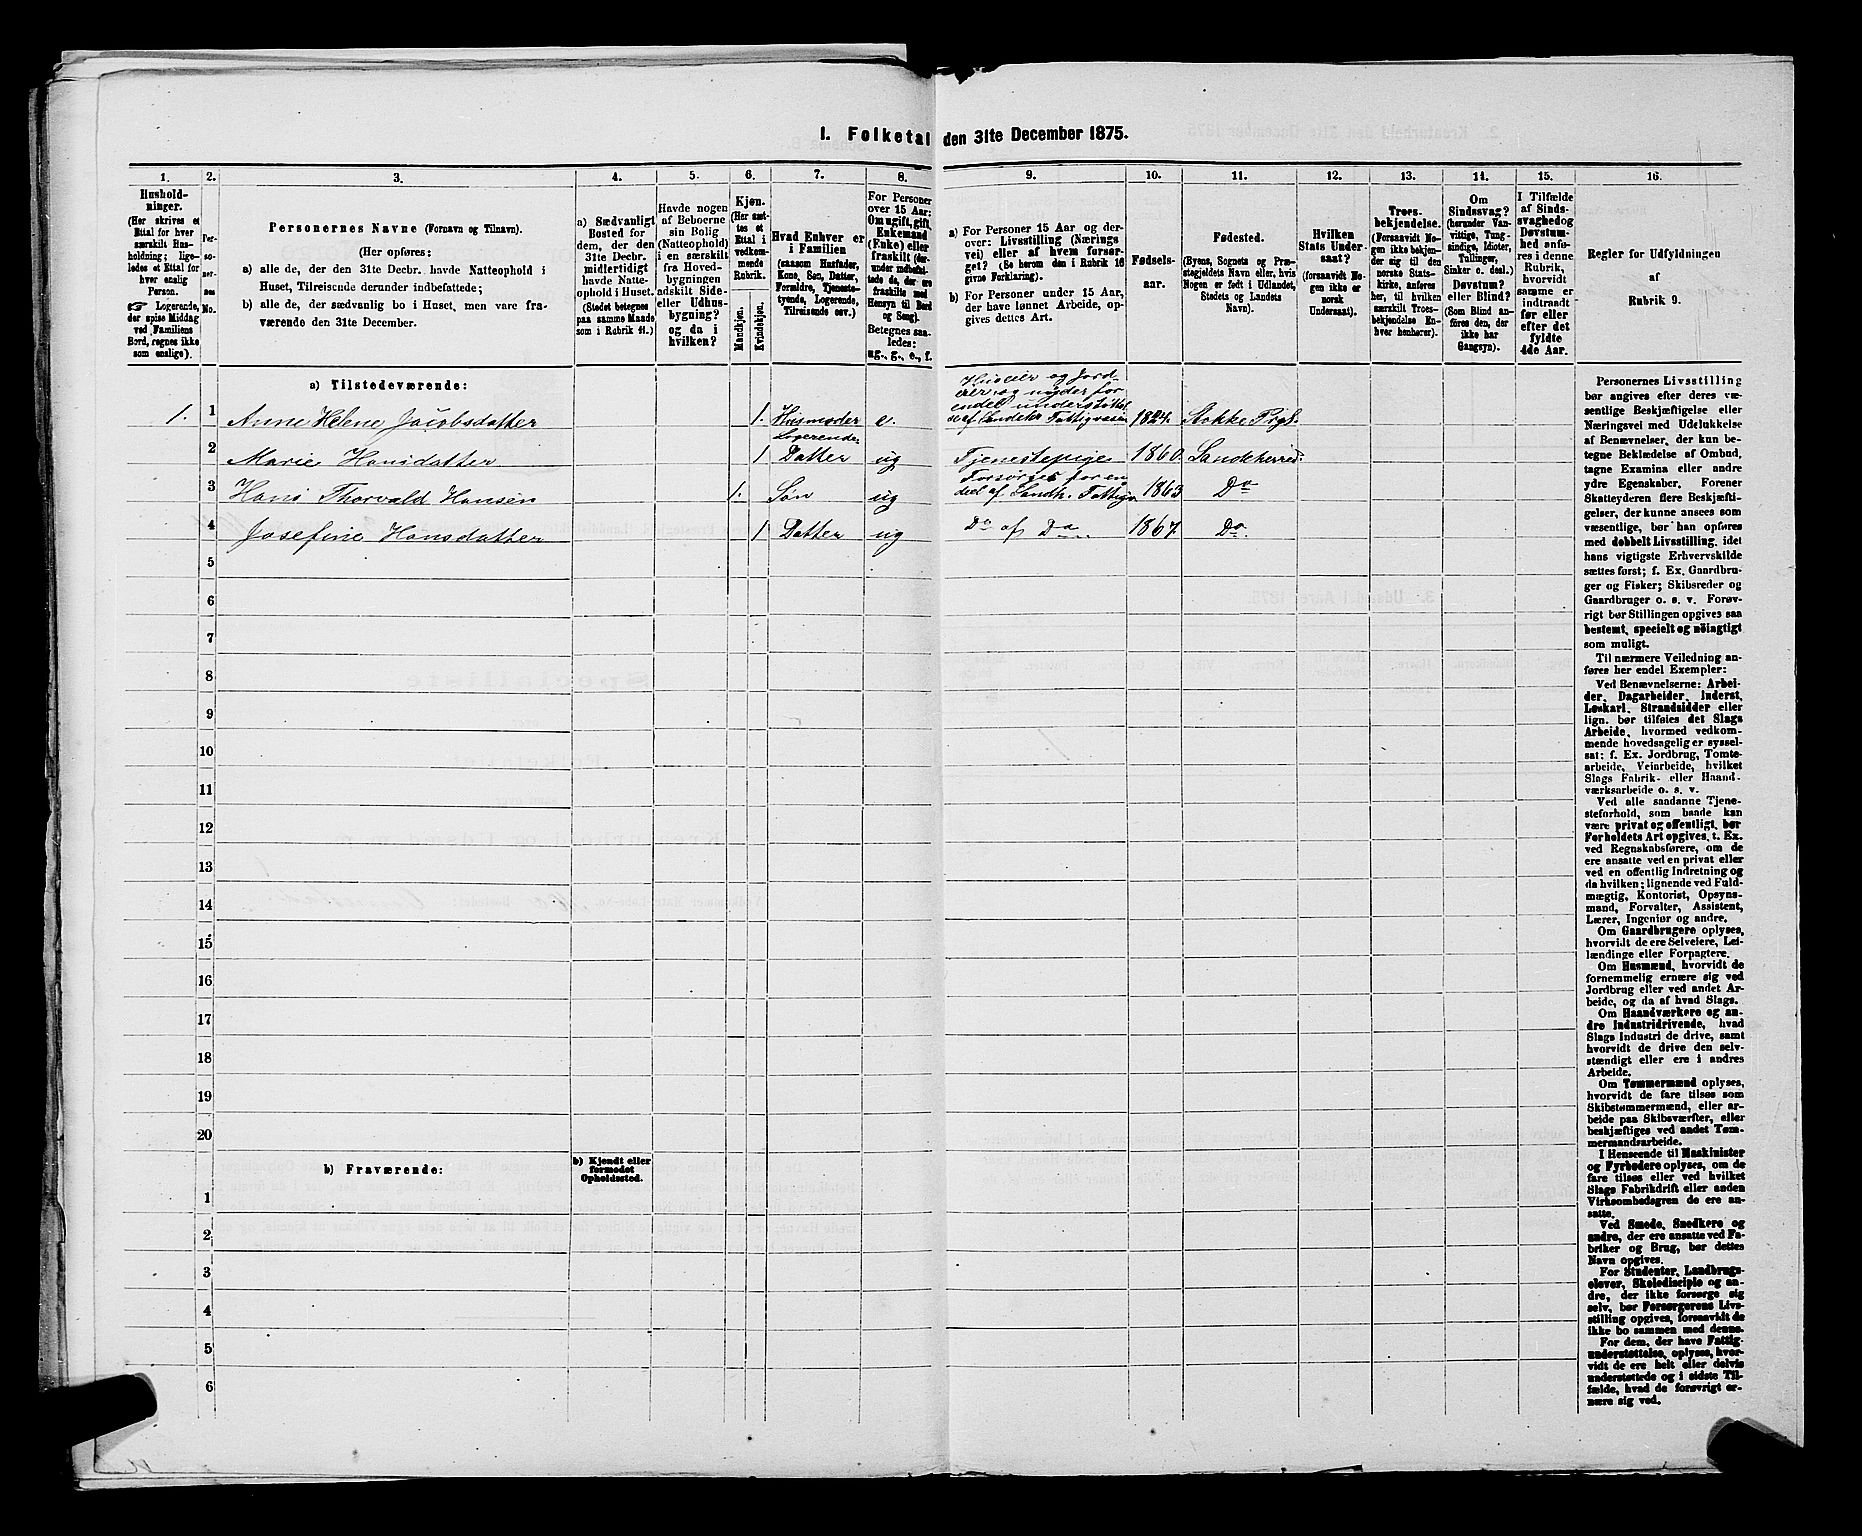 I. Folketal den 31te December 1875.
1. 2. 3. 4. 5. 6. 7. 8. 9. 10. 11. 12. 13. 14. 15. 16.
Hushold-
ninger.
(Her skrives et
Ettal for hver
særskilt Hus-
holdning; lige-
ledes et Ettal for
hver enslig
Person.
☞ Logerende,
der spise Middag
ved Familiens
Bord, regnes ikke
som enslige).
Per-
so-
ner-
nes
No.
Personernes Navne (Fornavn og Tilnavn).
(Her opføres:
a) alle de, der den 31te Decbr. havde Natteophold i
Huset, Tilreisende derunder indbefattede;
b) alle de, der sædvanlig bo i Huset, men vare fra-
værende den 31te December.
a) Sædvanligt
Bosted for
dem, der den
31te Decbr.
midlertidigt
havde Natte-
ophold i Huset.
(Stedet betegnes
paa samme Maade
som i Rubrik 11.)
Havde nogen
af Beboerne
sin Bolig
(Natteophold)
i en særskilt
fra Hoved-
bygningen
adskilt Side-
eller Udhus-
bygning?
og da i
hvilken?
Kjøn.
(Her sæt-
tes et
Ettal i
vedkom-
mende
Rubrik.
Mandkjøn.
Kvindekjøn.
Hvad Enhver er
i Familien
(saasom Husfader,
Kone, Søn, Datter,
Forældre, Tjeneste-
tyende, Logerende,
Tilreisende osv.)
For Personer
over 15 Aar:
Om ugift, gift,
Enkemand
(Enke) eller
fraskilt (der-
under indbefat-
tede de, der ere
fraskilte med
Hensyn til Bord
og Seng).
Betegnes saa-
ledes:
ug., g., e., f.
a) For Personer 15 Aar og der-
over: Livsstilling (Nærings
vei) eller af hvem forsør-
get? (Se herom den i Rubrik 16
givne Forklaring).
b) For Personer under 15 Aar,
der have lønnet Arbeide, op-
gives dettes Art.
Fødsels-
aar.
Fødested.
(Byens, Sognets og Præ-
stegjeldets Navn eller, hvis
Nogen er født i Udlandet,
Stedets og Landets
Navn).
Hvilken
Stats Under-
saat?
(forsaavidt No-
gen ikke er
norsk
Undersaat).
Troes-
bekjendelse.
(Forsaavidt No-
gen ikke bekjen-
der sig til den
norske Stats-
kirke, anføres
her, til hvilken
særskilt Troes-
bekjendelse En-
hver henhører).
Om
Sindssvag?
(herunder Van-
vittige, Tung-
sindige, Idioter,
Tullinger,
Sinker o. desl.)
Døvstum?
eller Blind?
(Som Blind an-
føres den, der
ikke har
Gangsyn).
I Tilfælde
af Sinds-
svaghed og
Døvstum-
hed anfø-
res i denne
Rubrik,
hvorvidt
samme er
indtraadt
før eller
efter det
fyldte
4de Aar.
Regler for Udfyldningen
af
Rubrik 9.
a) Tilstedeværende:
1. 1 Anne Helene Jacobsdatter 1. Husmoder e. Huseier og Jord-
eier og nyder for
endel understøttel-
se af Sandeher. Fattigvæsen 1824. Stokke Prgl.
2 Marie Hansdatter 1 Logerende
Datter ug Tjenestepige 1860. Sandeherred.
3 Hans Thorvald Hansen 1. Søn ug Forsørges for en
deel af Sandh. Fattigv. 1863 Do
4 Josefine Hansdatter 1 Datter ug Do af Do 1867. Do.
5
6
7
8
9
10
11
12
13
14
15
16
17
18
19
20
b) Fraværende:
b) Kjendt eller
formodet
Opholdssted.
1
2
3
4
5
6
Personernes Livsstilling
bør angives efter deres væ-
sentlige Beskjæftigelse eller
Næringsvei med Udelukkelse
af Benævnelser, der kun be-
tegne Beklædelse af Ombud,
tagne Examina eller andre
ydre Egenskaber. Forener
Skatteyderen flere Beskjæfti-
gelser, der kunne ansees som
væsentlige, bør han opføres
med dobbelt Livsstilling, idet
hans vigtigste Erhvervskilde
sættes først; f. Ex. Gaardbru-
ger og Fisker; Skibsreder og
Gaardbruger o. s. v. Forøv-
rigt bør Stillingen opgives saa
bestemt, specielt og nöiagtigt
som muligt.
Til nærmere Veiledning an-
føres her endel Exempler:
Ved Benævnelserne: Arbei-
der, Dagarbeider, Inderst,
Løskarl, Strandsidder eller
lign. bør tilføies det Slags
Arbeide, hvormed vedkom-
mende hovedsagelig er syssel-
sat; f. Ex. Jordbrug, Tomte-
arbeide, Veiarbeide, hvilket
Slags Fabrik- eller Haand-
værksarbeide o. s. v.
Ved alle saadanne Tjene-
steforhold, som baade kan
være privat og offentligt, bør
Forholdets Art opgives, t. Ex.
ved Regnskabsførere, om de
ere ansatte ved en privat eller
ved en offentlig Indretning og
da hvilken; lignende ved Fuld-
mægtig, Kontorist, Opsyns-
mand, Forvalter, Assistent,
Lærer, Ingeniør og andre.
Om Gaardbrugere oplyses,
hvorvidt de ere Selveiere, Lei-
lændinge eller Forpagtere.
Om Husmænd, hvorvidt de
fornemmelig ernære sig ved
Jordbrug eller ved andet Ar-
beide, og da af hvad Slags.
Om Haandværkere og an-
dre Industridrivende, hvad
Slags Industri de drive, samt
hvorvidt de drive den selv-
stændigt eller ere i andres
Arbeide.
Om Tømmermænd oplyses,
hvorvidt de fare tilsøs som
Skibstømmermænd, eller ar-
beide paa Skibsværfter, eller
beskjæftiges ved andet Tøm-
mermandrarbeide.
I Henseende til Maskinister
og Fyrbødere oplyses, om de
fare tilsøs eller ved hvilket
Slags Fabrikdrift eller anden
Virksomhedsgren de ere an-
satte.
Ved Smede, Snedkere og
andre, der ere ansatte ved Fa-
briker og Brug, bør dettes
Navn opgives.
For Studenter, Landbrugs-
elever, Skoledisciple og an-
dre, der ikke forsørge sig
selv, bør Forsørgerens Livs-
stilling opgives, forsaavidt de
ikke bo sammen med denne.
For dem, der have Fattig-
understøttelse, oplyses, hvor-
vidt de ere helt eller delvis
understøttede og i sidste Til-
fælde, hvad de forøvrigt er-
nære sig ved.